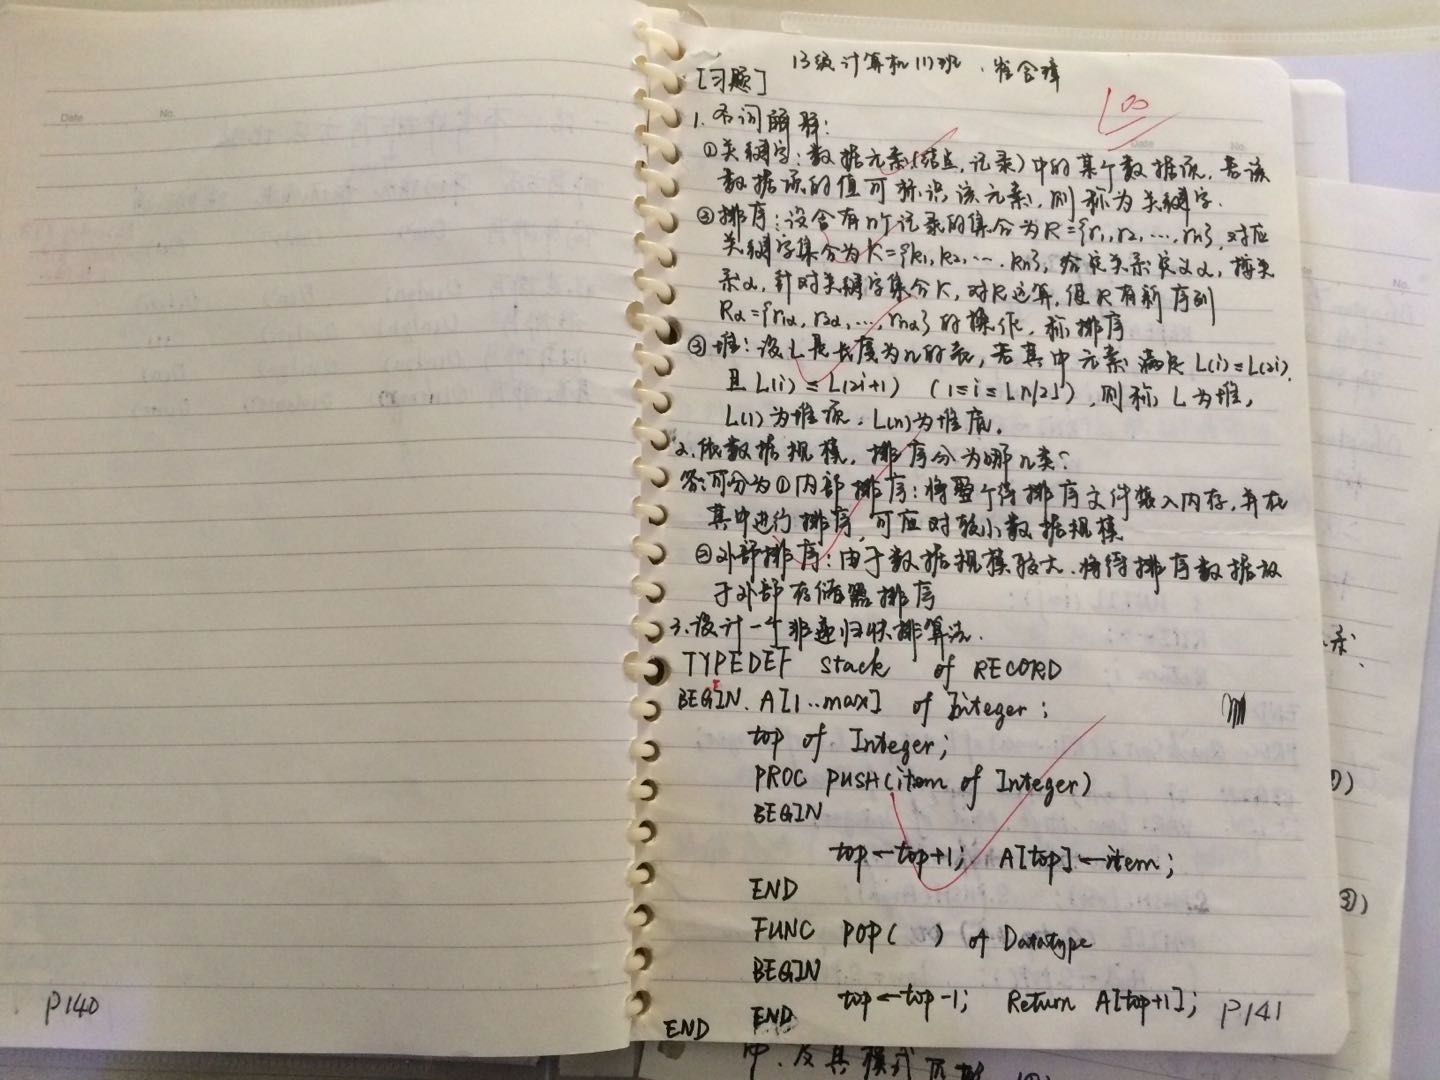 Date No.
P140
13级计算机(1)班
[习题]
100
1.名词解释:
Date No.
①关键字:数据元素(结点,记录)中的某个数据项,若该
数据项的值可标识该元素,则称为关键字.
②排序:设含有n个记录的集合为R={r1,r2,…,rn},对应
关键字集合为K={k1,k2,…,kn},给定关系定义α,按关
系α,针对关键字集合K,对R运算,使R有新序列
Rα={r1α,r2α,…,rnα}的操作,称排序
③堆:设L是长度为n的表,若其中元素满足L(i)≤L(2i)
且L(i)≤L(2i+1) (1≤i≤⌊n/2⌋),则称L为堆,
L(1)为堆顶,L(n)为堆底.
2.依数据规模,排序分为哪几类?
答:可分为①内部排序:将整个待排序文件装入内存,并在
其中进行排序,可应对较小数据规模
②外部排序:由于数据规模较大,将待排序数据放
于外部存储器排序
3.设计一个非递归快排算法.
TYPEDEF stack of RECORD
BEGIN. A[1..max] of Integer;
top of Integer;
PROC PUSH(item of Integer)
BEGIN
top←top+1; A[top]←item;
END
FUNC POP( ) of Datatype
BEGIN
top←top-1; Return A[top+1];
END
END
P141
系.
③)
中.及其模式匹配